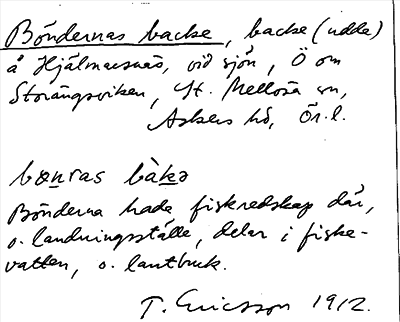 Böndernas backe, backe (udde)
å Hjälmarsnäs, vid sjön, Ö om
Storängsviken, St. Mellösa sn,
Askers hd, Ör. l.
bønras bàkə
Bönderna hade fiskredskap där,
o. landningsställe, delar i fiske-
vatten, o. lantbruk.
T. Ericsson 1912.